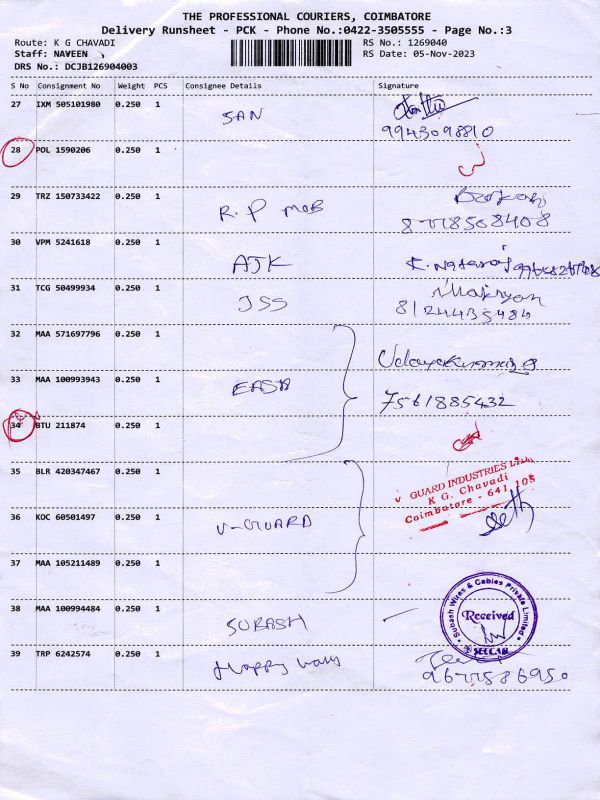 THE PROFESSIONAL COURIERS, COIMBATORE
Delivery Runsheet - PCK - Phone No.:0422-3505555 - Page No.:3
Route: K G CHAVADI
RS No.: 1269040
Staff: NAVEEN
RS Date: 05-Nov-2023
DRS No.: DCJB126904003
S No Consignment No Weight PCS Consignee Details Signature
27 IXM 505101980 0.250 1 SAN
9943098810
28 POL 1590206 0.250 1
29 TRZ 150733422 0.250 1 R.P MOB
30 VPM 5241618 0.250 1 AJK
31 TCG 50499934 0.250 1 JSS
8124435484
32 MAA 571697796 0.250 1
Udayakumar.g
33 MAA 100993943 0.250 1
7561885432
34 BTU 211874 0.250 1
35 BLR 420347467 0.250 1
V GUARD INDUSTRIES LTD.
K G. Chavadi
Coimbatore - 641 105
36 KOC 60501497 0.250 1 V-GUARD
37 MAA 105211489 0.250 1
38 MAA 100994484 0.250 1 SUBASH
Subash Wires & Cables Private Limited
Received
39 TRP 6242574 0.250 1 Happy
9677586950